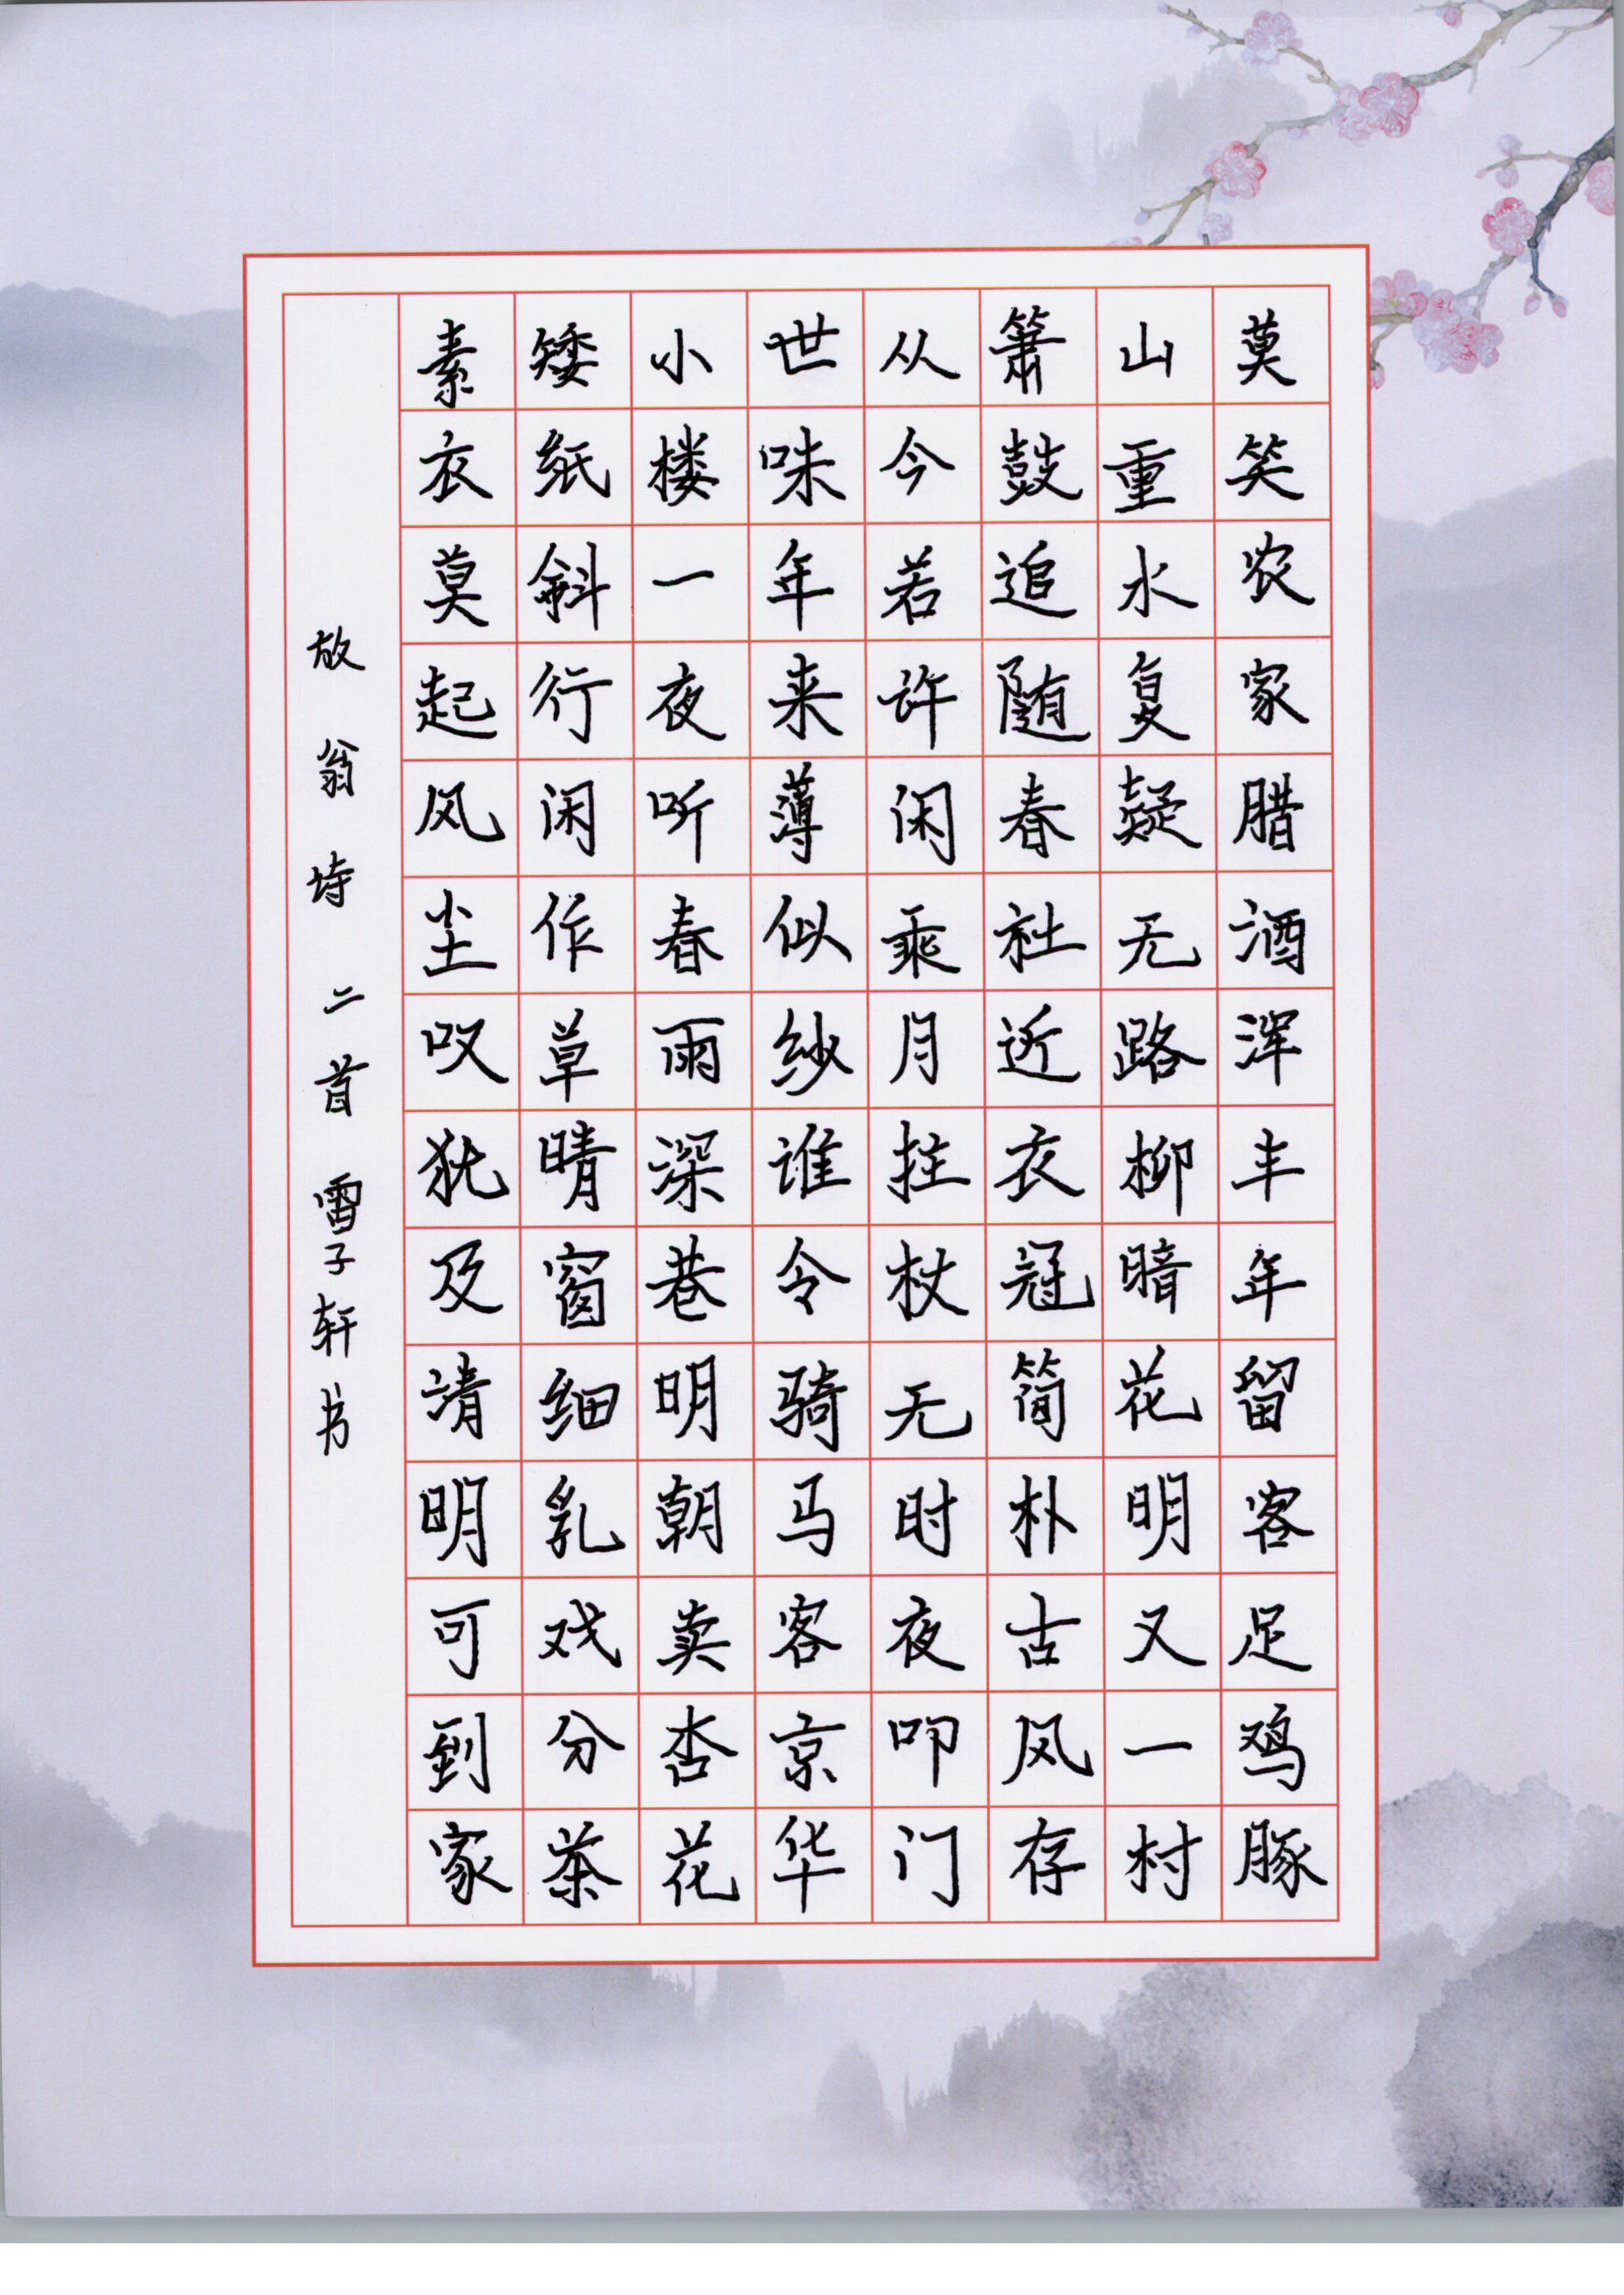 莫笑农家腊酒浑丰年留客足鸡豚
山重水复疑无路柳暗花明又一村
箫鼓追随春社近衣冠简朴古风存
从今若许闲乘月拄杖无时夜叩门
世味年来薄似纱谁令骑马客京华
小楼一夜听春雨深巷明朝卖杏花
矮纸斜行闲作草晴窗细乳戏分茶
素衣莫起风尘叹犹及清明可到家
放翁诗二首 雷子轩书